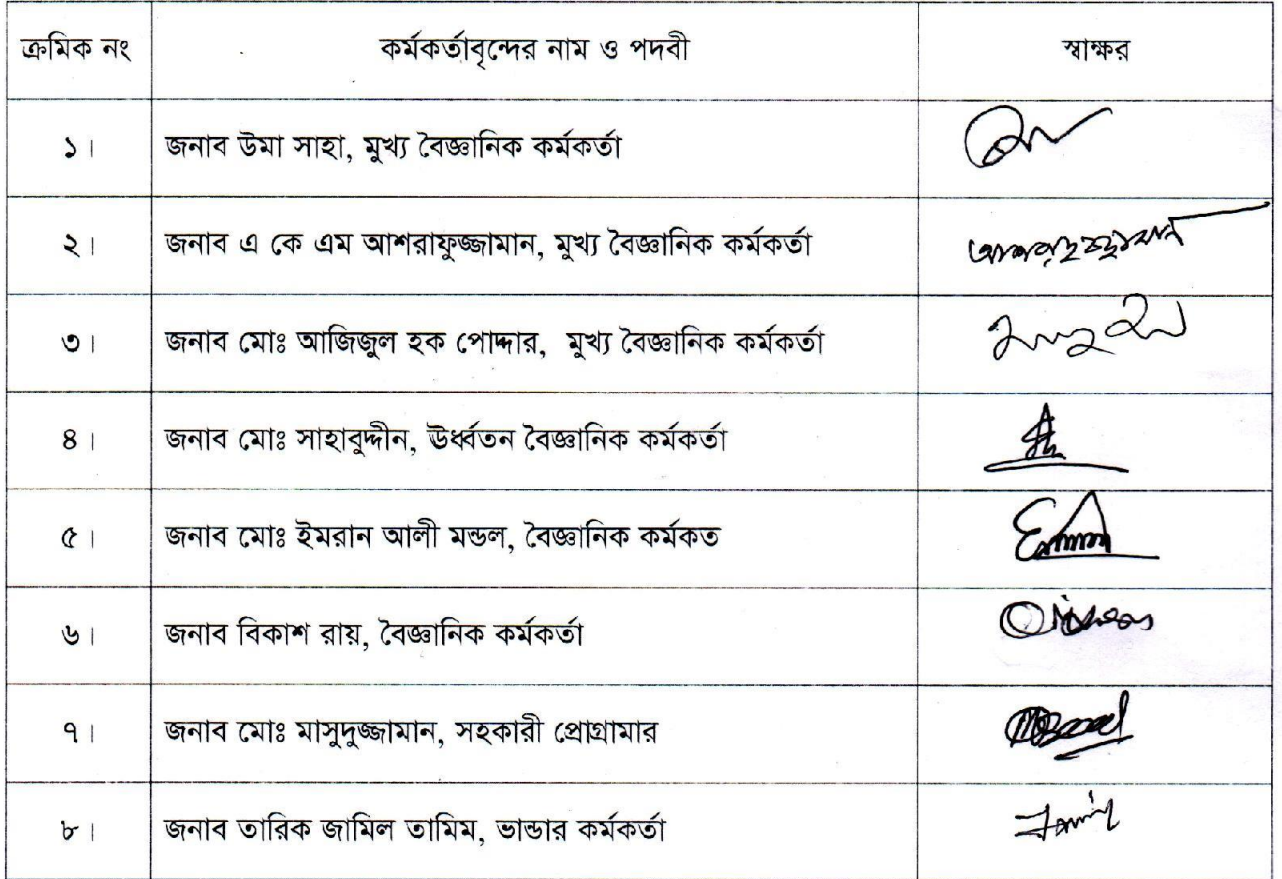 ক্রমিক নং কর্মকর্তাবৃন্দের নাম ও পদবী স্বাক্ষর
১। জনাব উমা সাহা, মুখ্য বৈজ্ঞানিক কর্মকর্তা
২। জনাব এ কে এম আশরাফুজ্জামান, মুখ্য বৈজ্ঞানিক কর্মকর্তা আশরাফুজ্জামান
৩। জনাব মোঃ আজিজুল হক পোদ্দার, মুখ্য বৈজ্ঞানিক কর্মকর্তা
৪। জনাব মোঃ সাহাবুদ্দীন, ঊর্ধ্বতন বৈজ্ঞানিক কর্মকর্তা
৫। জনাব মোঃ ইমরান আলী মন্ডল, বৈজ্ঞানিক কর্মকত
৬। জনাব বিকাশ রায়, বৈজ্ঞানিক কর্মকর্তা
৭। জনাব মোঃ মাসুদুজ্জামান, সহকারী প্রোগ্রামার
৮। জনাব তারিক জামিল তামিম, ভান্ডার কর্মকর্তা